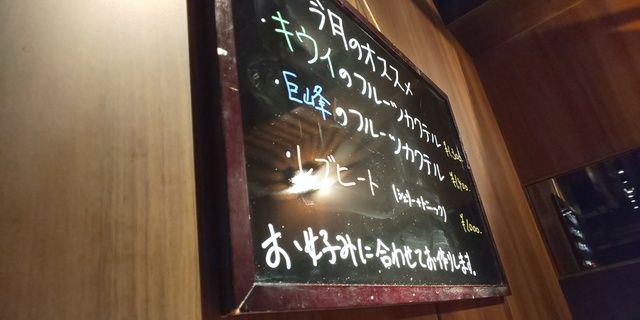 今月のオススメ
・キウイのフルーツカクテル
・巨峰のフルーツカクテル
・レブヒート (シェリー+トニック) ¥1,000.
お好みに合わせてお作りします。